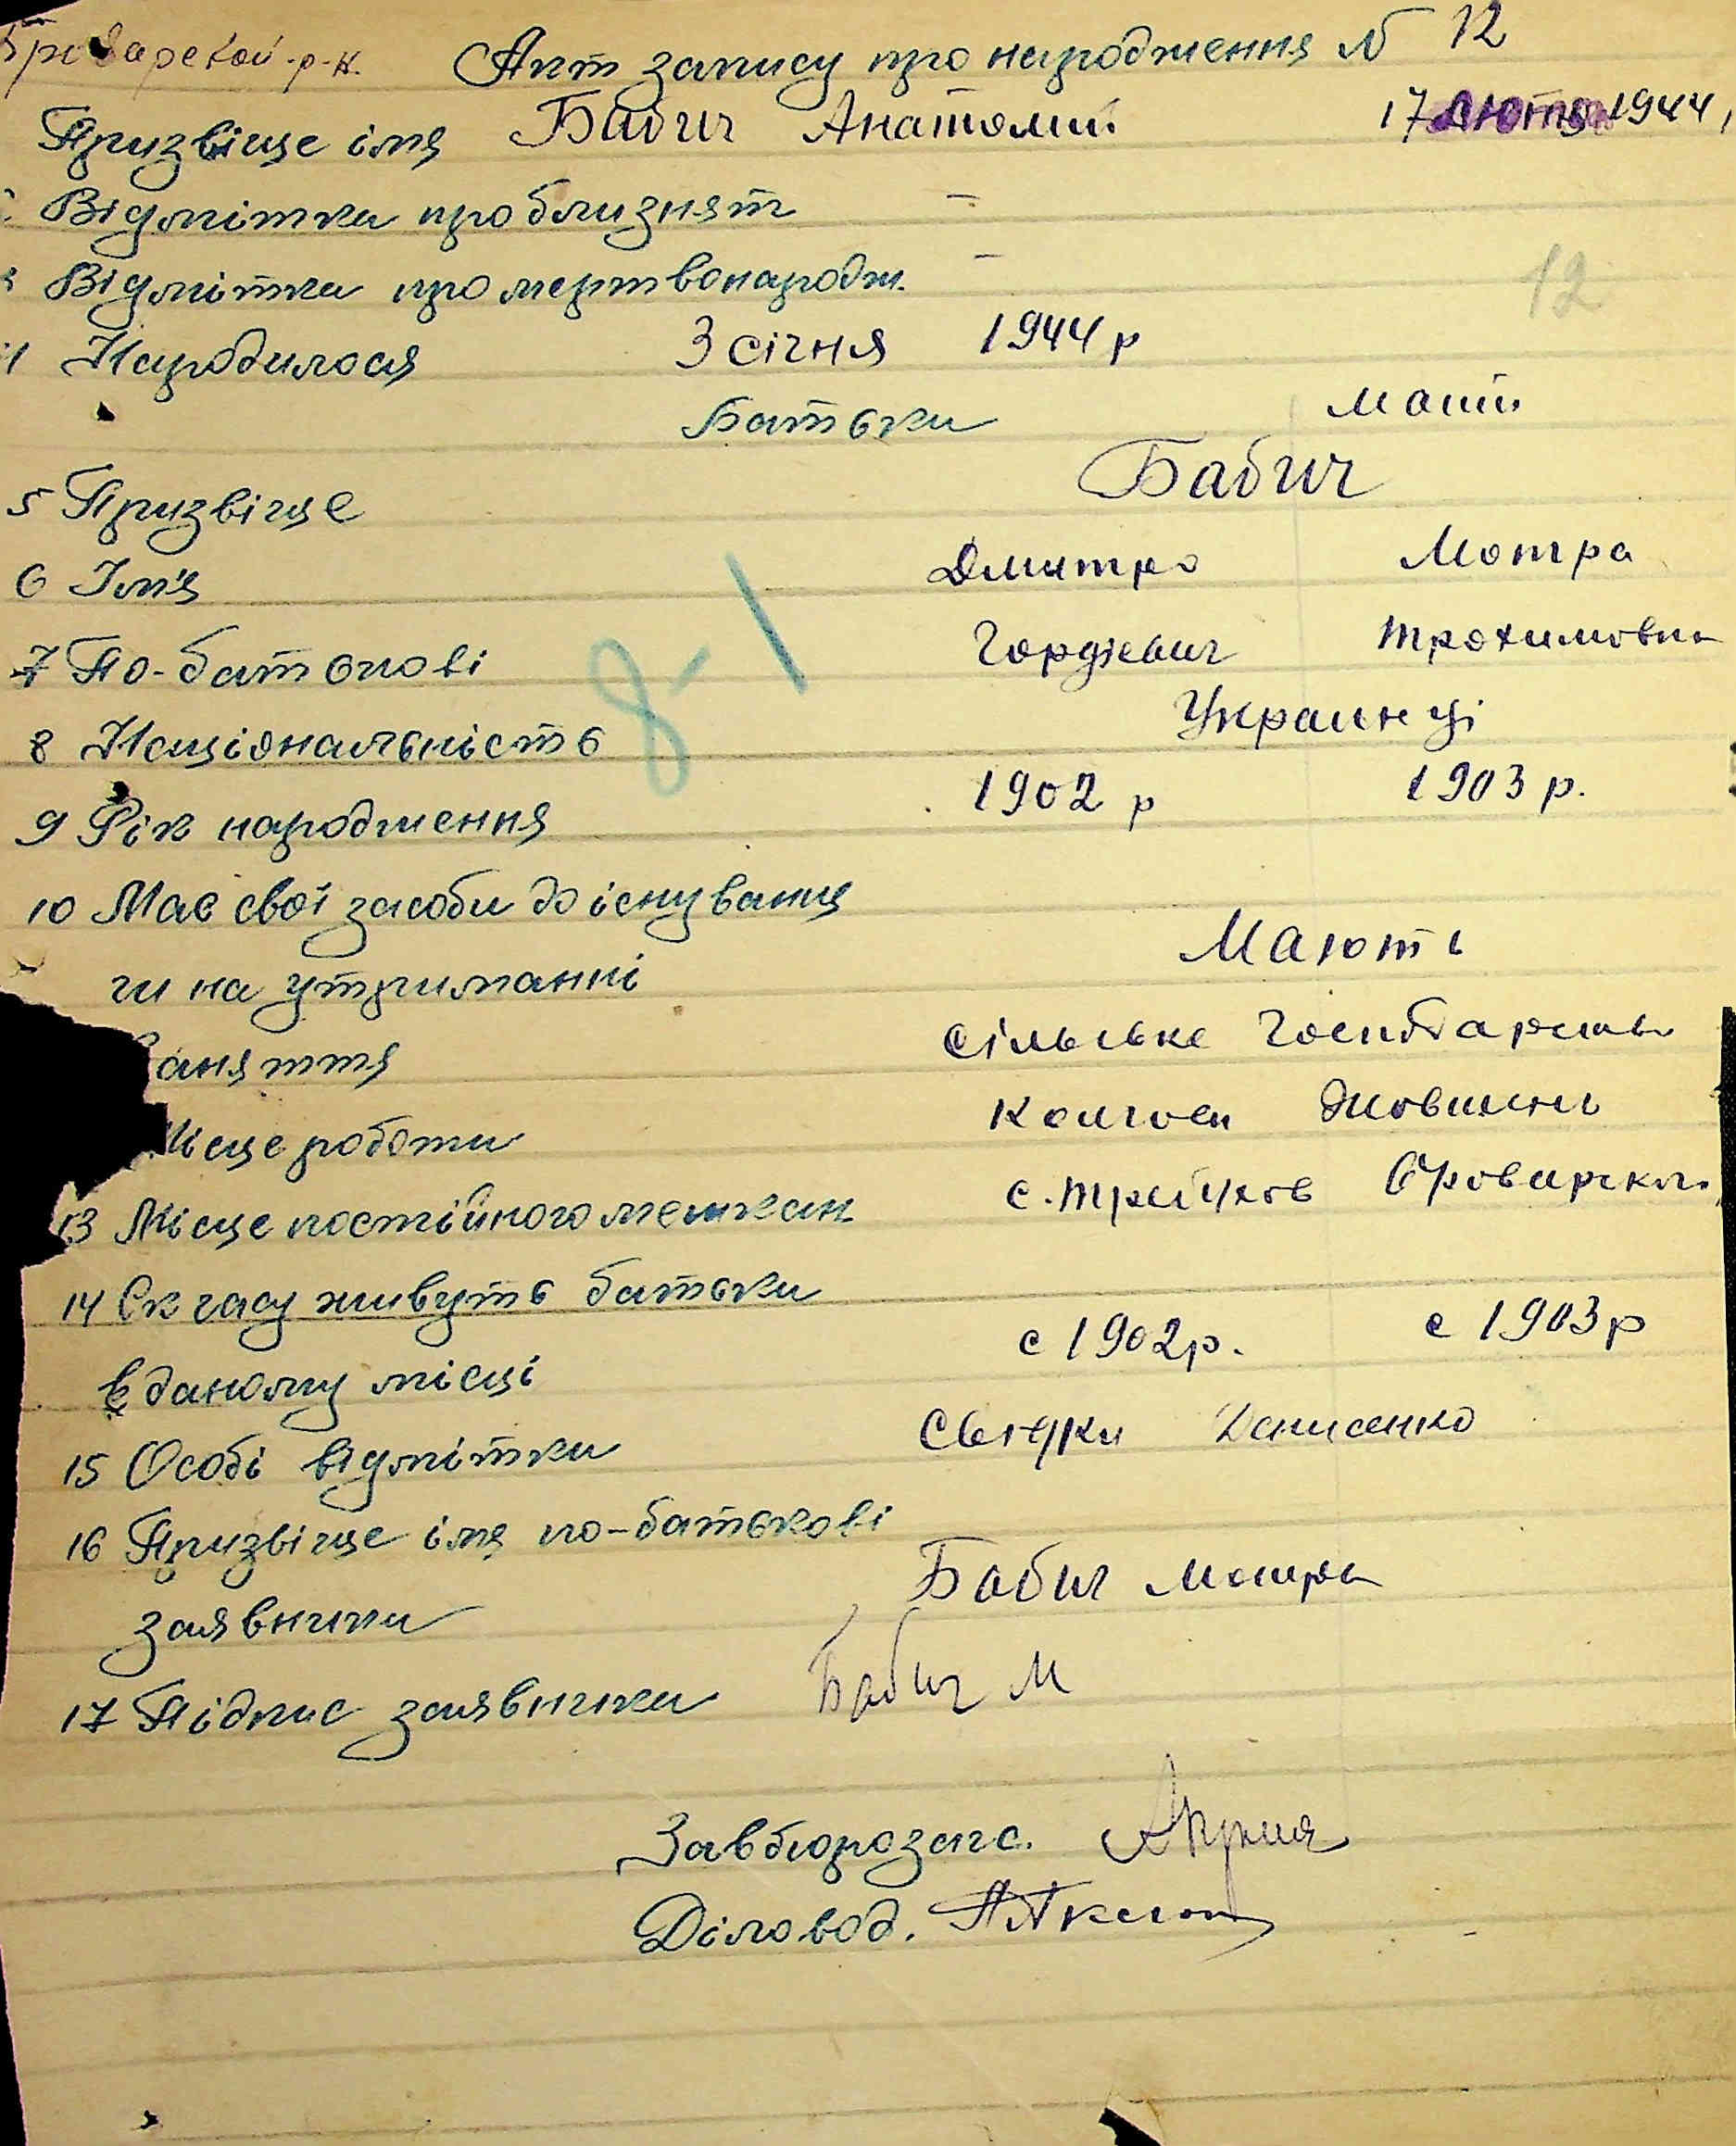 Броварской р-н. Акт запису про народження № 12
Призвіще імя Бабич Анатолий 17 лютого 1944,
Відмітка про близнят –
Відмітка про мертвонародж. –
12
4 Народилося 3 січня 1944 р
Батьки мати
5 Призвіще Бабич
6 Імя Дмитро Мотра
7 По-батькові Гордієвич Трохимовна
8-1
8 Національність Украинці
9 Рік народження 1902 р 1903 р.
10 Має свої засоби до існування
чи на утриманні Мають
аняття Сільське Господарство
Місце роботи Колгосп Жовтень
13 Місце постійного мешкан. с. Броварского
14 Ск часу живуть батьки
в даному місці с 1902 р. с 1903 р
15 Особі відмітки Свідки Денисенко
16 Призвіще імя по-батькові
заявника Бабич Мотра
17 Підпис заявника Бабич М
Завбюрозагс.
Діловод.